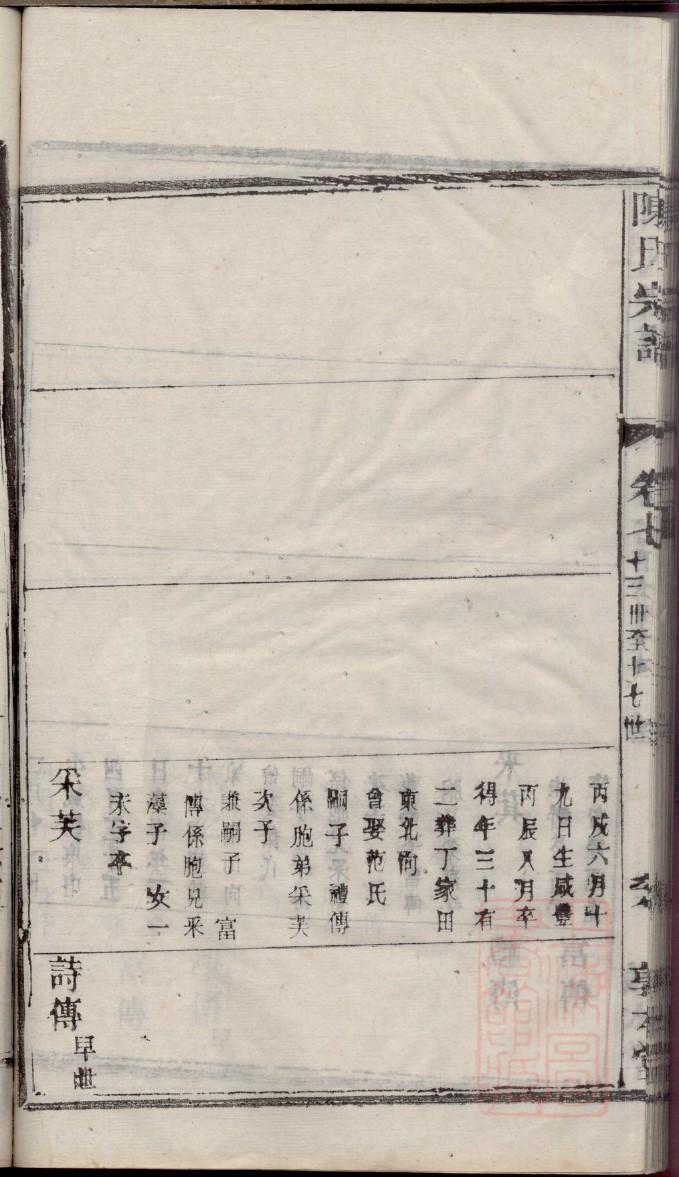 陳氏宗譜
卷七
十三世至十七世
丙戌六月十
九日生咸豐
丙辰八月卒
得年三十有
二葬丁家田
東北向
曾娶范氏
嗣子禮傳
係胞弟采芙
次子
兼嗣子 富
傳係胞兄采
藻子 女一
未字卒
采芙
詩傳 早世